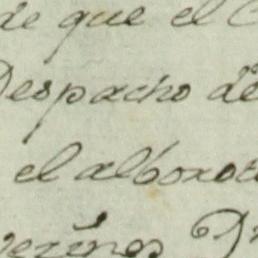 de que el C
Despacho de
el alboroto
vezinos D